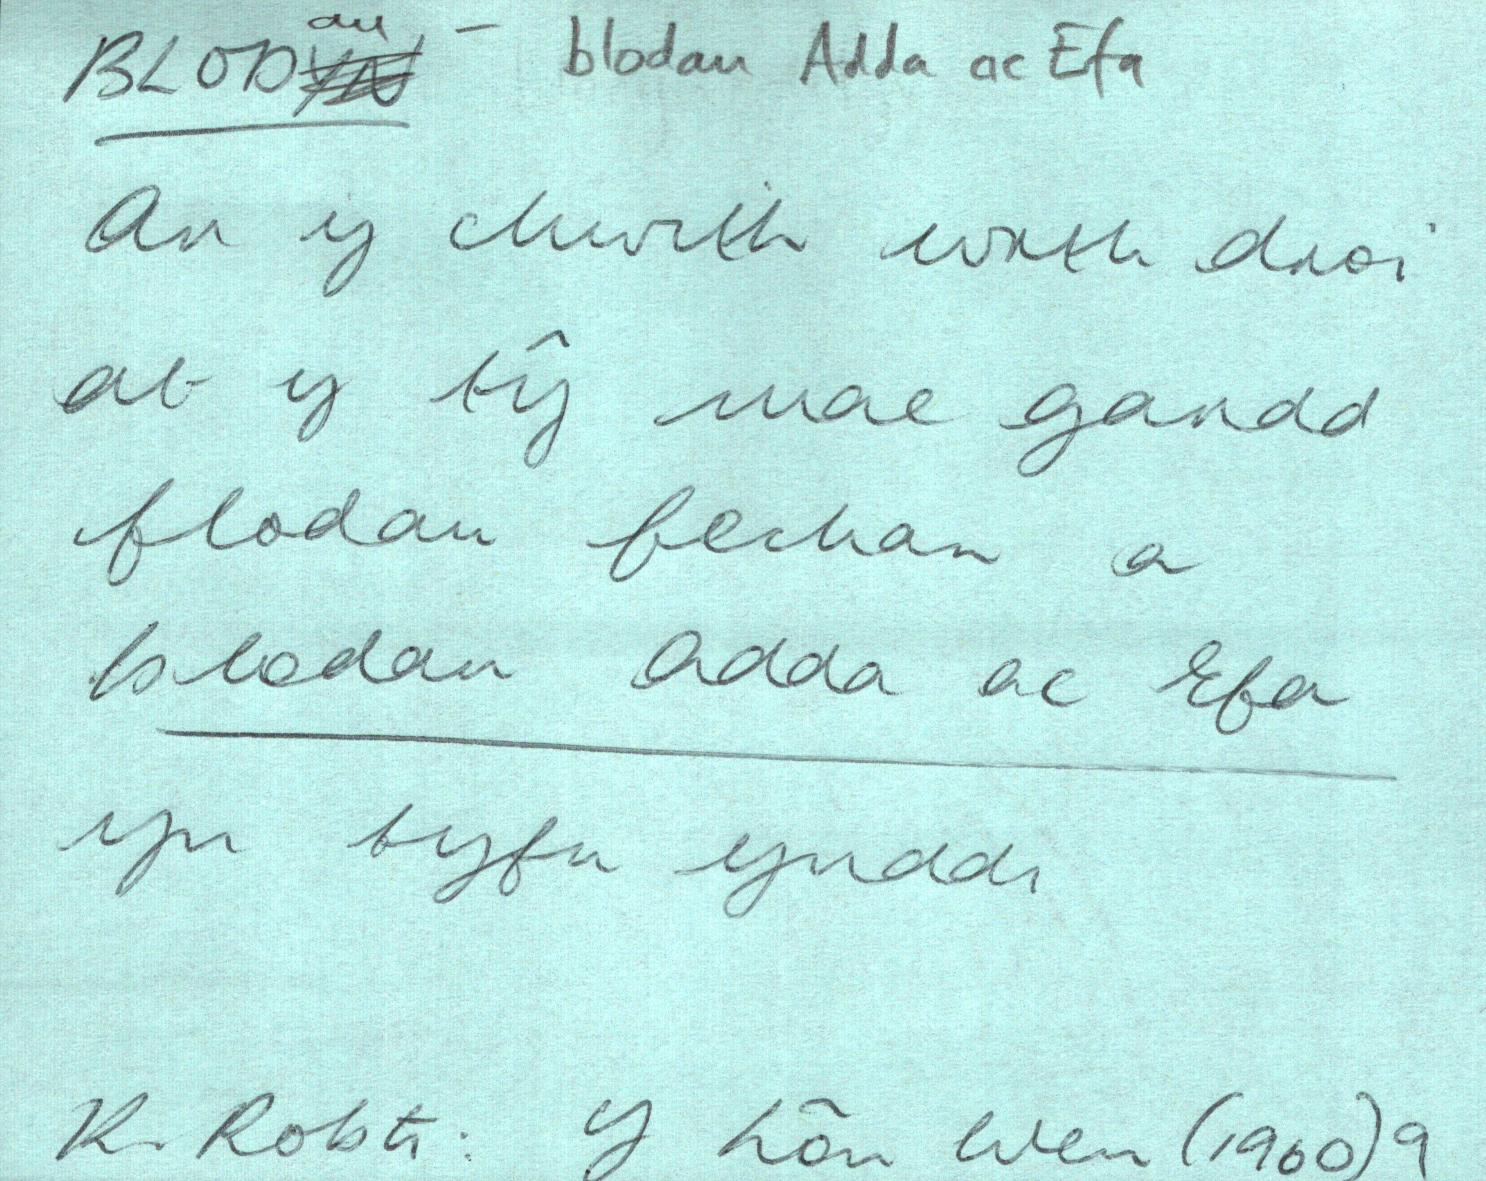 BLODau - blodau Adda ac Efa
Ar y chwith wrth droi
at y tŷ mae gardd
flodau fechan a
blodau Adda ac Efa
yn tyfu ynddi
K. Robts: Y Lôn Wen (1960) 9